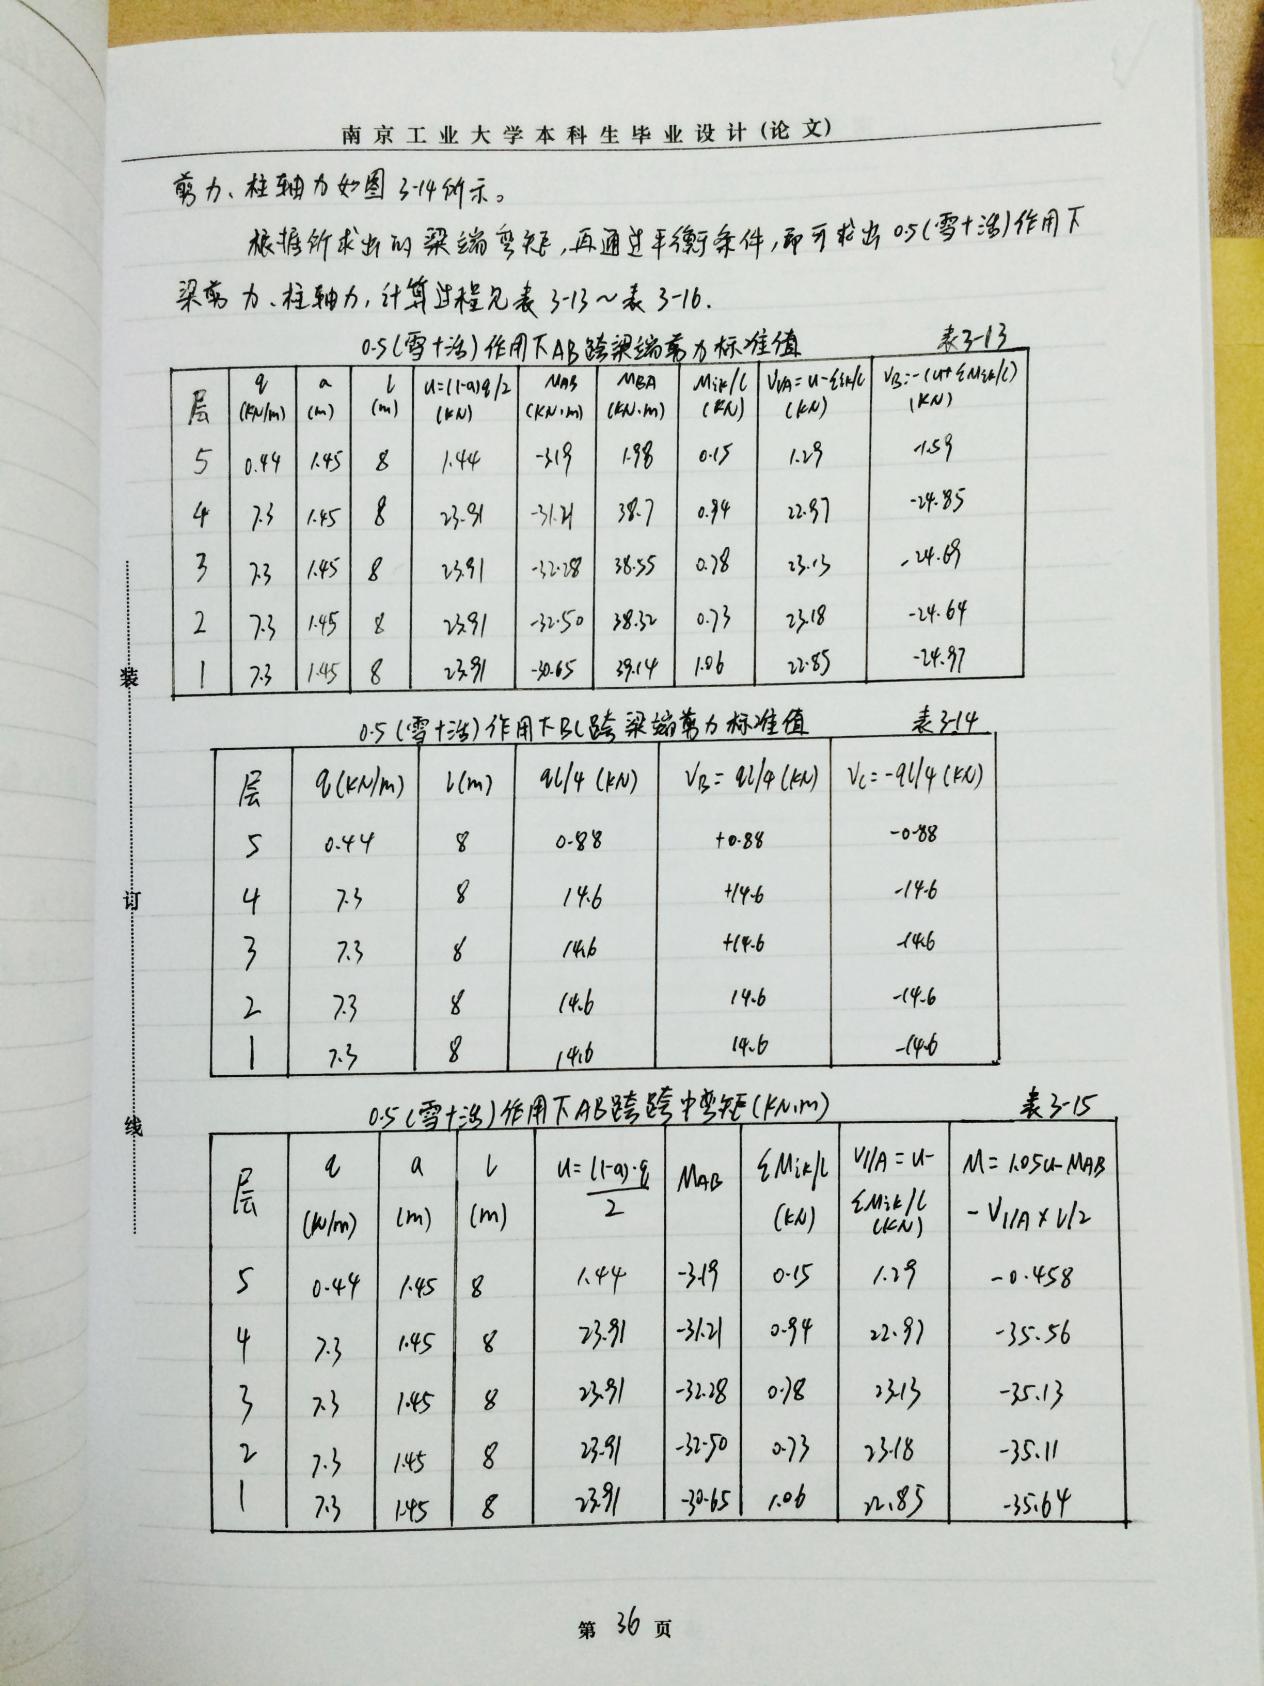 南京工业大学本科生毕业设计(论文)
剪力、柱轴力如图3-14所示。
根据所求出的梁端弯矩,再通过平衡条件,即可求出0.5(雪+活)作用下
梁剪力、柱轴力,计算过程见表3-13~表3-16.
0.5(雪+活)作用下AB跨梁端剪力标准值 表3-13
层 q(KN/m) a(m) l(m) u=(l-a)q/2(KN) MAB(KN·m) MBA(KN·m) Mik/l(KN) V1/A=u-ΣMik/l(KN) VB=-(u+ΣMik/l)(KN)
5 0.44 1.45 8 1.44 -3.19 1.98 0.15 1.29 -1.59
4 7.3 1.45 8 23.91 -31.21 38.7 0.94 22.97 -24.85
3 7.3 1.45 8 23.91 -32.28 38.55 0.78 23.13 -24.69
2 7.3 1.45 8 23.91 -32.50 38.32 0.73 23.18 -24.64
1 7.3 1.45 8 23.91 -30.65 39.14 1.06 22.85 -24.97
0.5(雪+活)作用下BC跨梁端剪力标准值 表3-14
层 q(KN/m) l(m) ql/4(KN) VB=ql/4(KN) VC=-ql/4(KN)
5 0.44 8 0.88 +0.88 -0.88
4 7.3 8 14.6 +14.6 -14.6
3 7.3 8 14.6 +14.6 -14.6
2 7.3 8 14.6 14.6 -14.6
1 7.3 8 14.6 14.6 -14.6
0.5(雪+活)作用下AB跨跨中弯矩(KN·m) 表3-15
层 q(KN/m) a(m) l(m) u=(l-a)·q/2 MAB ΣMik/l(KN) V1/A=u-ΣMik/l(KN) M=1.05u-MAB-V1/A×l/2
5 0.44 1.45 8 1.44 -3.19 0.15 1.29 -0.458
4 7.3 1.45 8 23.91 -31.21 0.94 22.97 -35.56
3 7.3 1.45 8 23.91 -32.28 0.78 23.13 -35.13
2 7.3 1.45 8 23.91 -32.50 0.73 23.18 -35.11
1 7.3 1.45 8 23.91 -30.65 1.06 22.85 -35.64
装
订
线
第 36 页